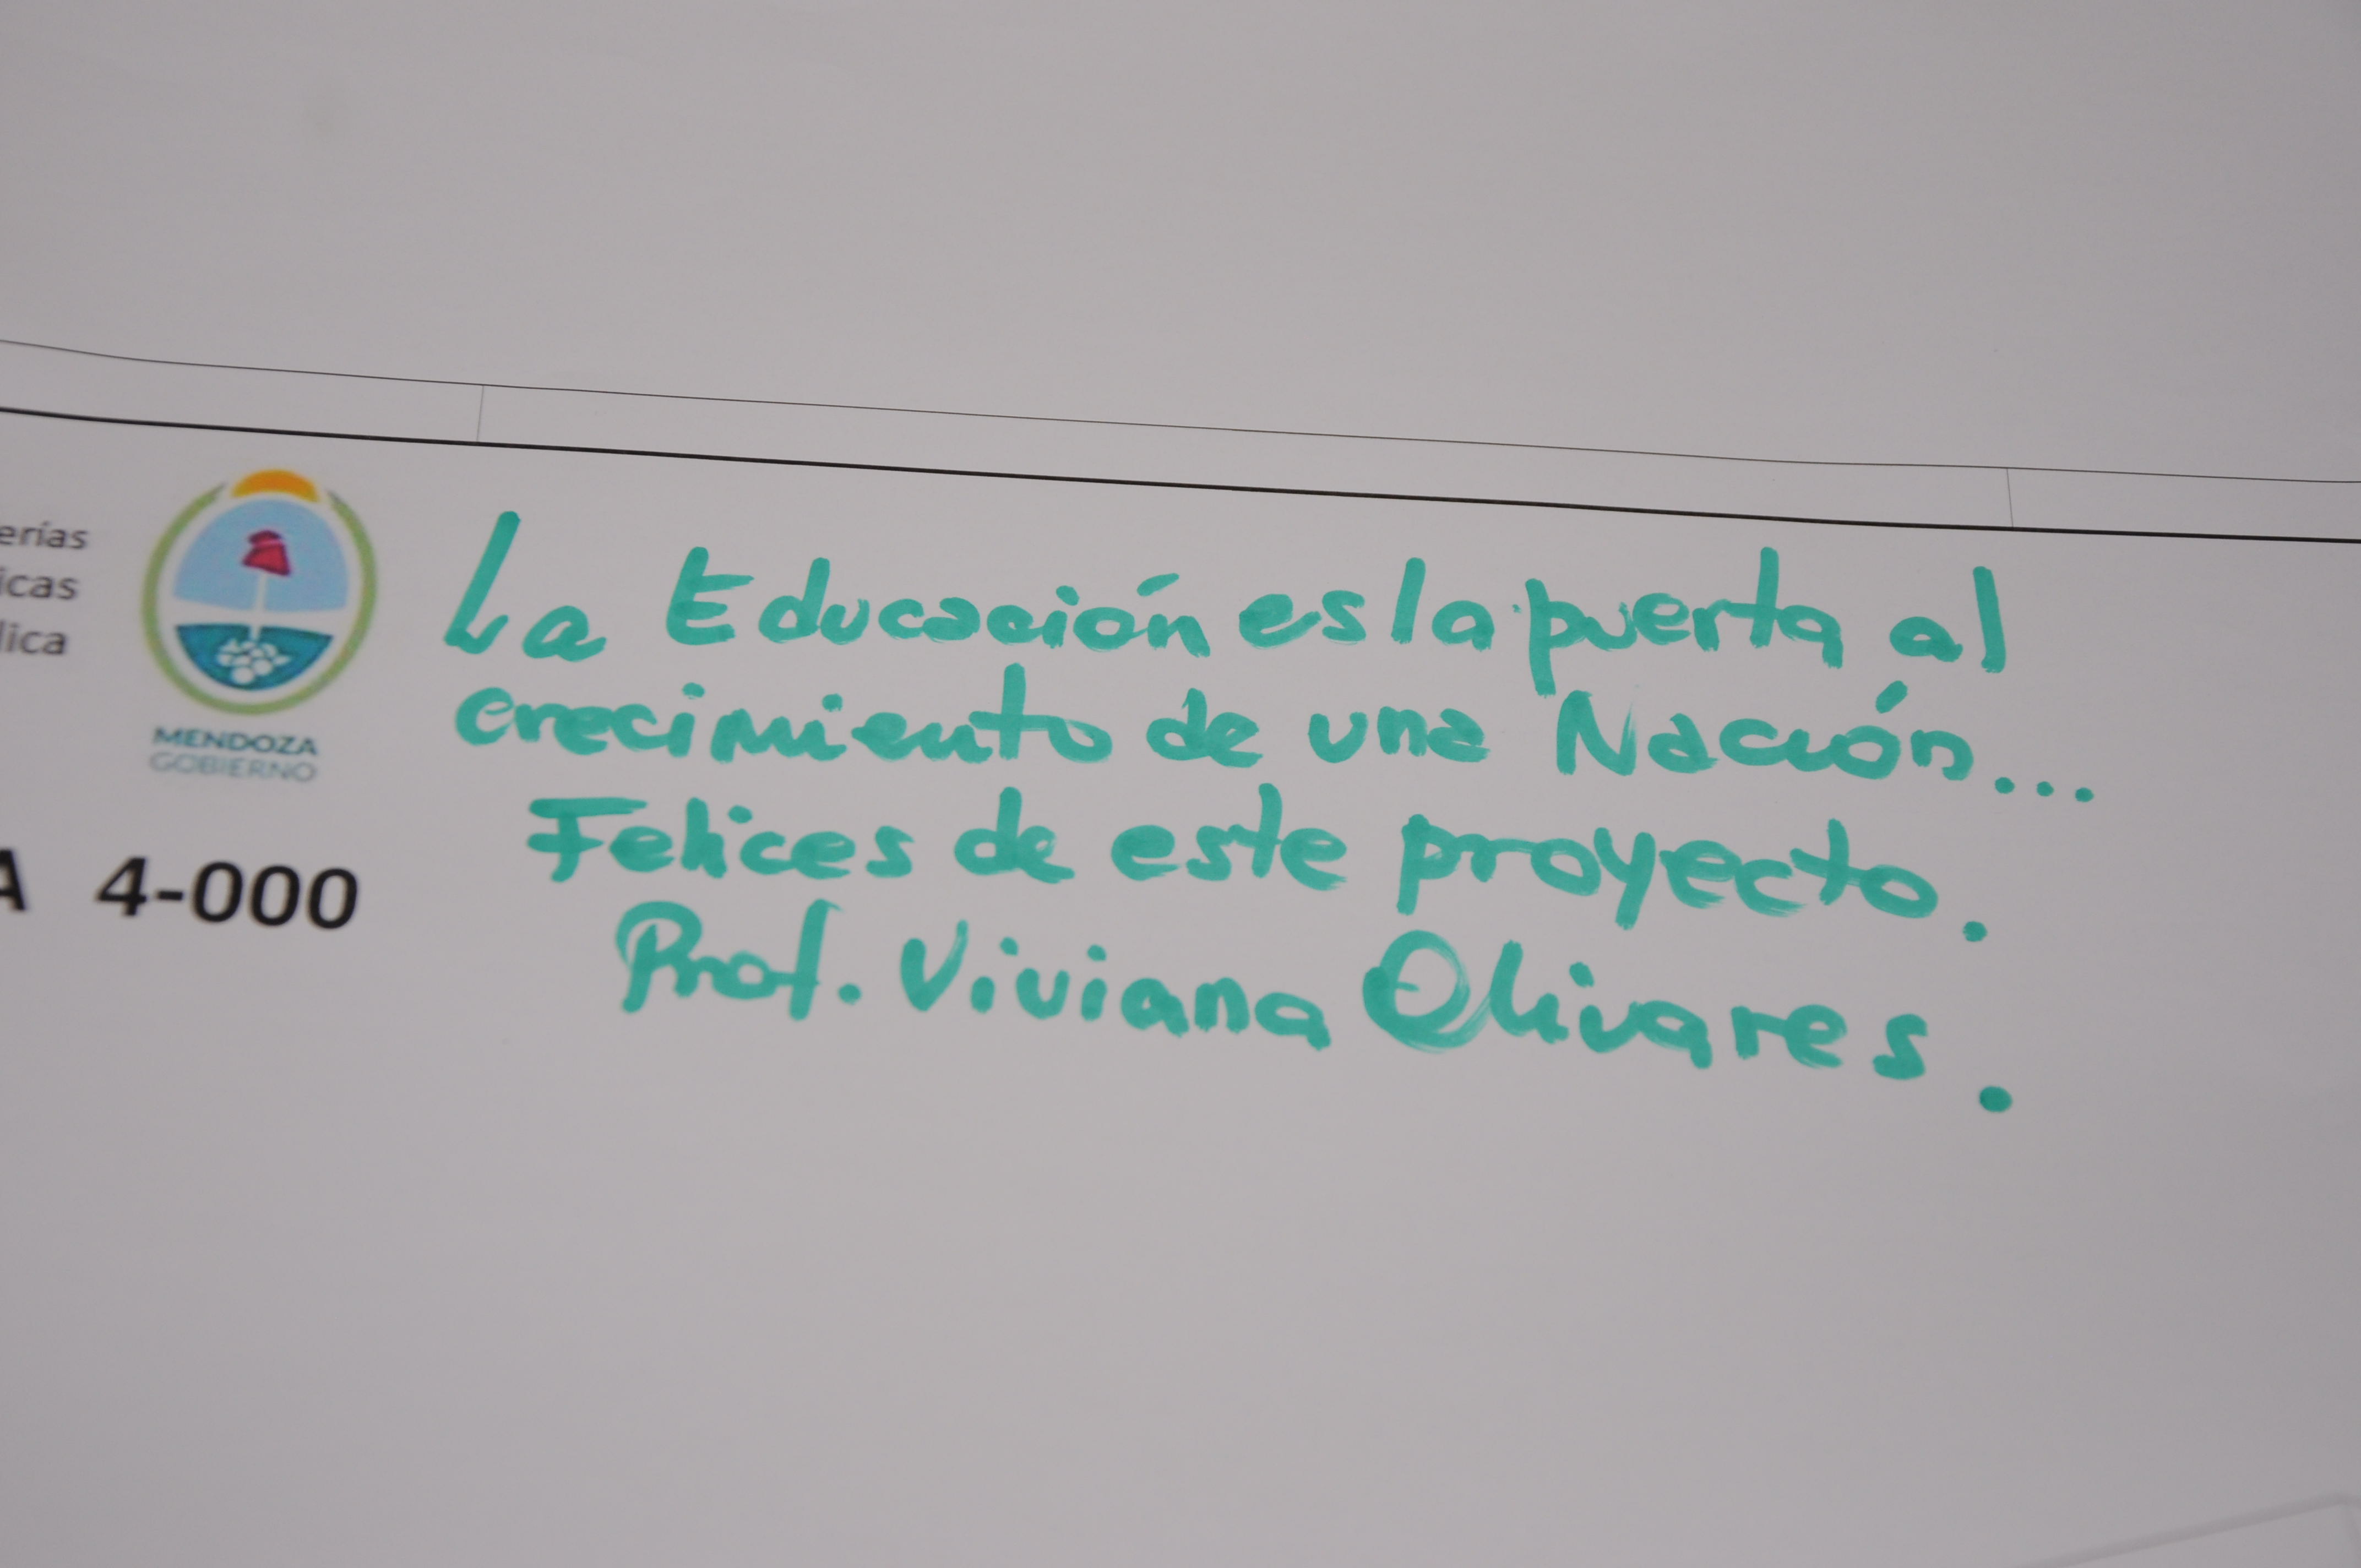 erías
icas
lica
MENDOZA
GOBIERNO
A 4-000
La Educación es la puerta al
crecimiento de una Nación...
Felices de este proyecto.
Prof. Viviana Olivares.